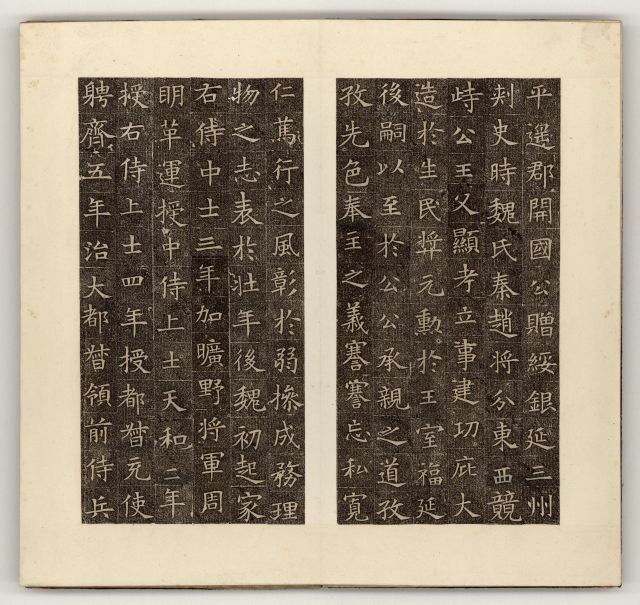 平遥郡開國公贈綏銀延三州
刺史時魏氏秦趙將分東西競
峙公王父顯考立事建功庇大
造於生民奬元勳於王室福延
後嗣以至於公公承親之道孜
孜先色奉主之義謇謇忘私寬
仁篤行之風彰於弱操成務理
物之志表於壯年後魏初起家
右侍中士三年加曠野將軍周
明革運授中侍上士天和二年
授右侍上士四年授都督充使
聘齊五年治大都督領前侍兵